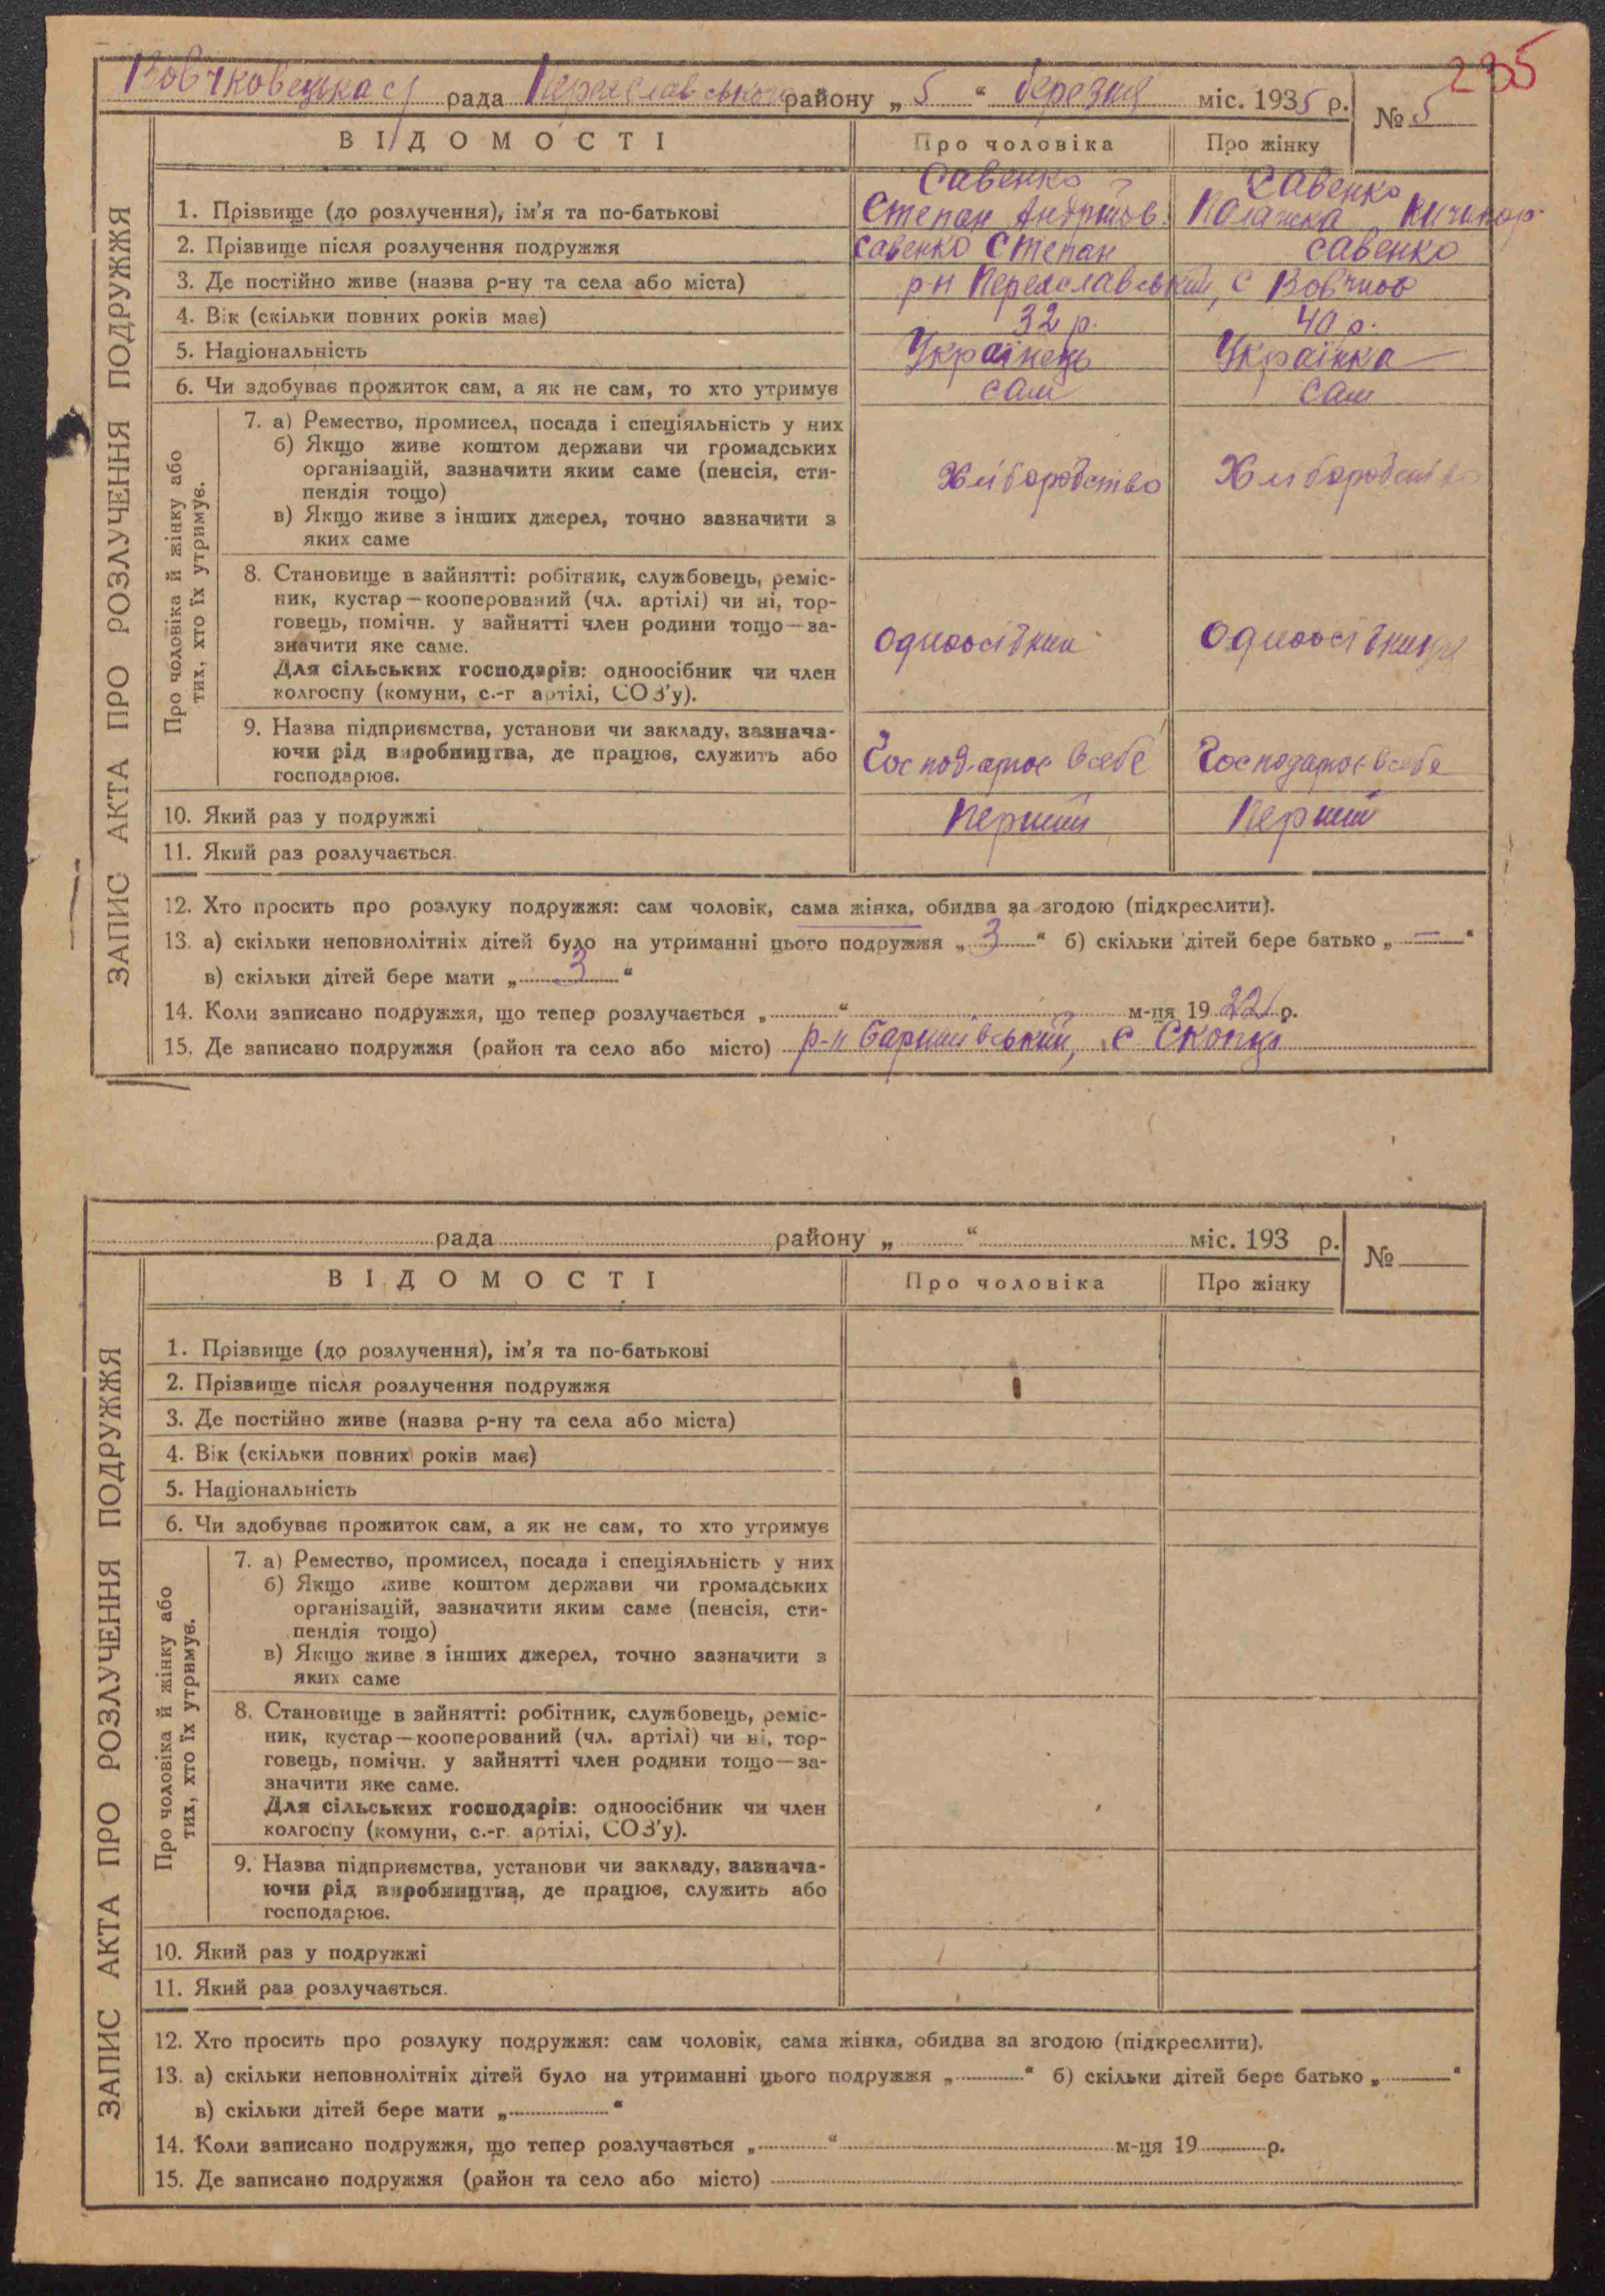 235
Вовчковецька с/ рада Переяславського району „ 5 “ березня міс. 1935 р. № 5
ВІДОМОСТІ Про чоловіка Про жінку
ЗАПИС АКТА ПРО РОЗЛУЧЕННЯ ПОДРУЖЖЯ
Савенко Савенко
1. Прізвище (до розлучення), ім'я та по-батькові Степан Андріїов. Палажка Ничипор.
2. Прізвище після розлучення подружжя Савенко Степан Савенко
3. Де постійно живе (назва р-ну та села або міста) рн Переяславський, с Вовчков
4. Вік (скільки повних років має) 32 р. 40 р.
5. Національність Українець Українка
6. Чи здобуває прожиток сам, а як не сам, то хто утримує сам сам
Про чоловіка й жінку або
тих, хто їх утримує.
7. а) Ремество, промисел, посада і спеціяльність у них
б) Якщо живе коштом держави чи громадських
організацій, зазначити яким саме (пенсія, сти-
пендія тощо) Хліборобство Хліборобство
в) Якщо живе з інших джерел, точно зазначити з
яких саме
8. Становище в зайнятті: робітник, службовець, реміс-
ник, кустар—кооперований (чл. артілі) чи ні, тор-
говець, помічн. у зайнятті член родини тощо—за-
значити яке саме. Одноосібник Одноосібниця
Для сільських господарів: одноосібник чи член
колгоспу (комуни, с.-г артілі, СОЗ'у).
9. Назва підприємства, установи чи закладу, зазнача-
ючи рід виробництва, де працює, служить або Господарює в себе Господарює в себе
господарює.
10. Який раз у подружжі Перший Перший
11. Який раз розлучається.
12. Хто просить про розлуку подружжя: сам чоловік, сама жінка, обидва за згодою (підкреслити).
13. а) скільки неповнолітніх дітей було на утриманні цього подружжя „ 3 “ б) скільки дітей бере батько „ — “
в) скільки дітей бере мати „ 3 “
14. Коли записано подружжя, що тепер розлучається „ “ м-ця 19 22 р.
15. Де записано подружжя (район та село або місто) р-н Баришівський, с Скопці
рада району „ “ міс. 193 р. №
ВІДОМОСТІ Про чоловіка Про жінку
ЗАПИС АКТА ПРО РОЗЛУЧЕННЯ ПОДРУЖЖЯ
1. Прізвище (до розлучення), ім'я та по-батькові
2. Прізвище після розлучення подружжя
3. Де постійно живе (назва р-ну та села або міста)
4. Вік (скільки повних років має)
5. Національність
6. Чи здобуває прожиток сам, а як не сам, то хто утримує
Про чоловіка й жінку або
тих, хто їх утримує.
7. а) Ремество, промисел, посада і спеціяльність у них
б) Якщо живе коштом держави чи громадських
організацій, зазначити яким саме (пенсія, сти-
пендія тощо)
в) Якщо живе з інших джерел, точно зазначити з
яких саме
8. Становище в зайнятті: робітник, службовець, реміс-
ник, кустар—кооперований (чл. артілі) чи ні, тор-
говець, помічн. у зайнятті член родини тощо—за-
значити яке саме.
Для сільських господарів: одноосібник чи член
колгоспу (комуни, с.-г. артілі, СОЗ'у).
9. Назва підприємства, установи чи закладу, зазнача-
ючи рід виробництва, де працює, служить або
господарює.
10. Який раз у подружжі
11. Який раз розлучається.
12. Хто просить про розлуку подружжя: сам чоловік, сама жінка, обидва за згодою (підкреслити).
13. а) скільки неповнолітніх дітей було на утриманні цього подружжя „ “ б) скільки дітей бере батько „ “
в) скільки дітей бере мати „ “
14. Коли записано подружжя, що тепер розлучається „ “ м-ця 19 р.
15. Де записано подружжя (район та село або місто)